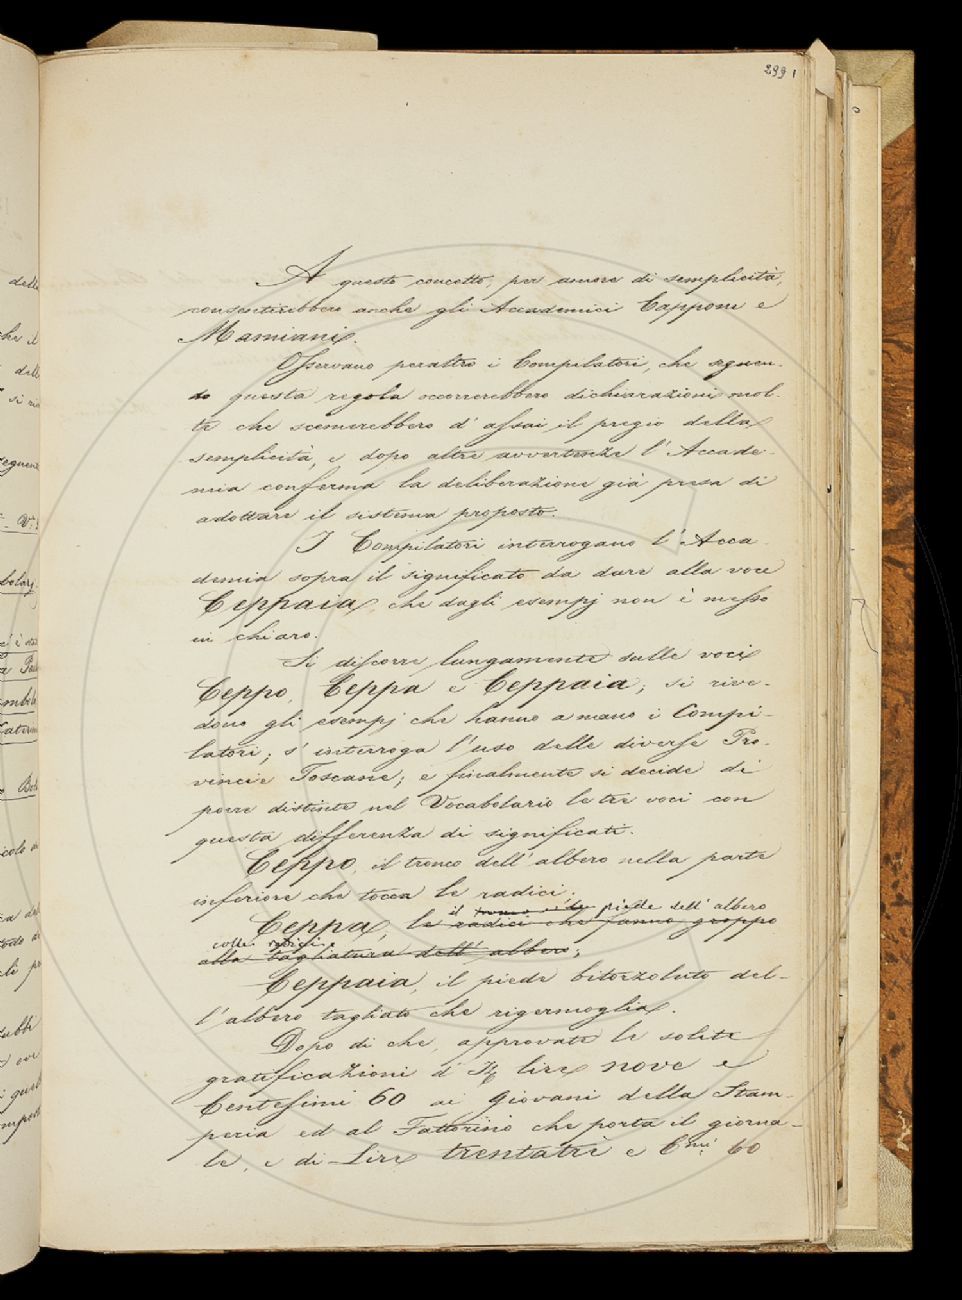 299
A questo concetto, per amore di semplicità,
consentirebbero anche gli Accademici Capponi e
Mamiani.
Osservano peraltro i Compilatori, che seguen-
do questa regola occorrerebbero dichiarazioni mol-
te che scemerebbero d'assai il pregio della
semplicità, e dopo altre avvertenze l'Accade-
mia conferma la deliberazione già presa di
adottare il sistema proposto.
I Compilatori interrogano l'Acca-
demia sopra il significato da dare alla voce
Ceppaia, che dagli esempj non è messo
in chiaro.
Si discorre lungamente sulle voci
Ceppo, Ceppa e Ceppaia; si rive-
dono gli esempj che hanno a mano i Compi-
latori; s'interroga l'uso delle diverse Pro-
vincie Toscane; e finalmente si decide di
porre distinte nel Vocabolario le tre voci con
questa differenza di significati.
Ceppo, il tronco dell'albero nella parte
inferiore che tocca le radici;
il piede dell'albero
Ceppa, le radici che fanno groppo
colle radici;
alla tagliatura dell'albero;
Ceppaia, il piede bitorzoluto del-
l'albero tagliato che rigermoglia.
Dopo di che, approvate le solite
gratificazioni di lire nove e
Centesimi 60 ai giovani della Stam-
peria ed al Fattorino che porta il giorna-
le, e di Lire trentatrè e Cmi 60